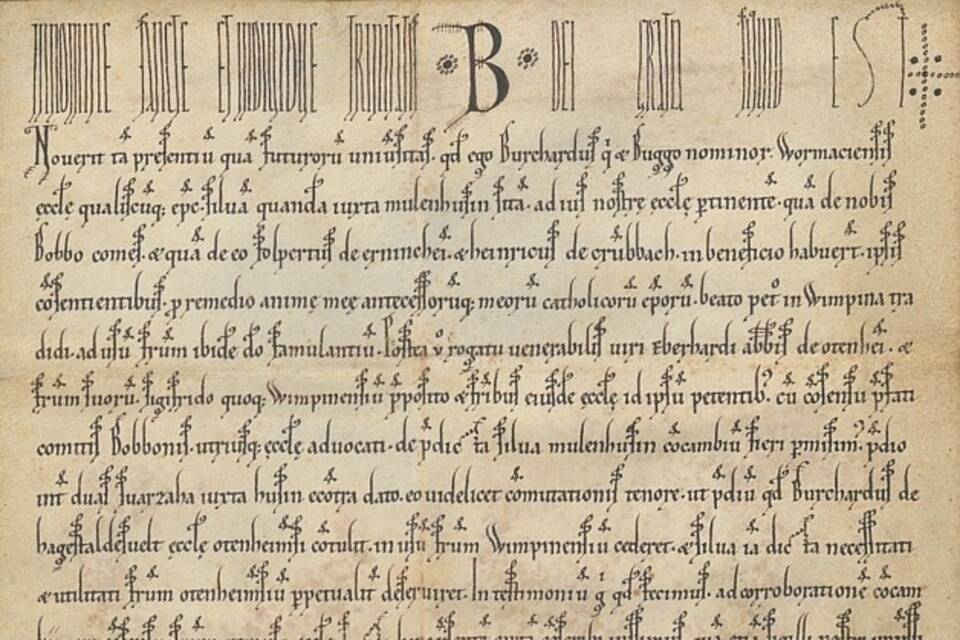 IN NOMINE SANCTE ET INDIVIDUE TRINITATIS B DEI GRATIA ID QUOD EST
Nouerit tā presentiū quā futurorū uniuersitas· qd ego Burchardus q̇ & Buggo nominor· Wormaciensis
eccle qualiscuq; epc· silua quandā iuxta mulenhusin sitā· ad ius nostre eccle ptinente· quā de nobis
Bobbo comes· & quā de eo folpertus de erninchei· & heinricus de crubbach· in beneficio habuert· ipsis
cosentientibus· p remedio anime meę antecessorūq; meorū catholicorū eporū· beato pet° in Wimpina tra
didi· ad usū frum ibidē do famulantiū· Postea v° rogatu uenerabilis uiri Eberhardi abbis de otenhei· &
frum suorū· sigifrido quoq; Wimpinensiū pposito & fribus eiusdē eccle id ipsū petentib; cū cosensu pfati
comitis Bobbonis· utriusq; eccle aduocati· de pdicta silua mulenhusin cocambiū fieri pmisim; pdio
int duas suarzaha iuxta husin ecotra dato· eo uidelicet comutationis tenore· ut pdiū qd Burchardus de
hagestaldesuelt eccle otenheimsi cotulit· in usū frum Wimpinensiū cederet· & silua iā dicta necessitati
& utilitati frum otenheimsiū ppetualit deseruiret· In testimoniū g° qd fecimus· ad corroborationē cocam